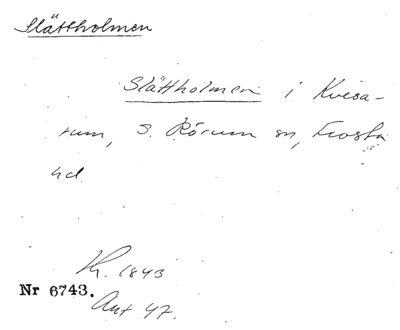 Slättholmen
Slättholmen i Kvesa-
rum, S. Rörum sn, Frosta
hd
Kr. 1843
Nr 6743.
Ant 47.